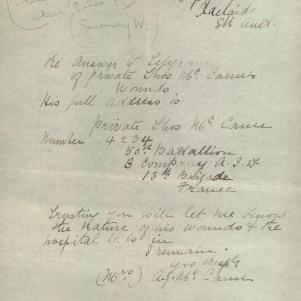 Adelaide
Sth Aust.
Re Answer to Telegram
of private Thos Mc Canes
Wounds
His full address is
Private Thos Mc Cane
Number 4234
50th Battallion
B Company A.I.F
13th Brigade
France
Trusting you will let me know
the nature of his wounds & the
hospital he is in
I remain
yrs respt
(Mrs) A.G. Mc Cane